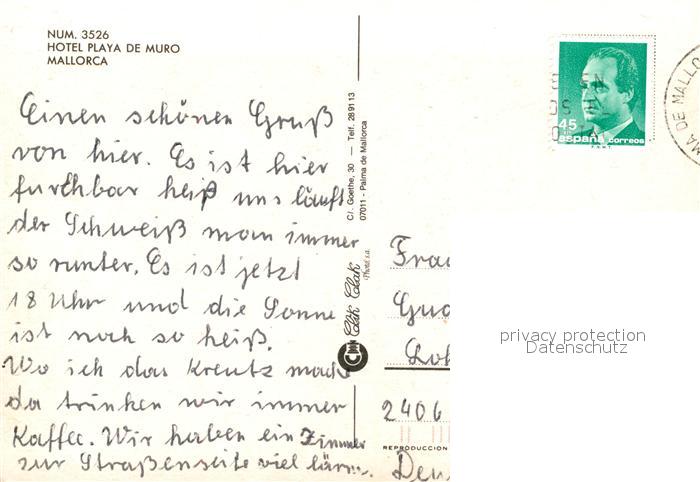 NUM. 3526
HOTEL PLAYA DE MURO
MALLORCA
Einen schönen Gruß
von hier. Es ist hier
furchbar heiß uns läuft
der Schweiß man immer
so runter. Es ist jetzt
18 Uhr und die Sonne
ist noch so heiß.
Wo ich das Kreutz mache
da trinken wir immer
Kaffee. Wir haben ein Zimmer
zur Straßenseite viel lärm.
C/. Goethe, 30 — Telf. 28 91 13
07011 - Palma de Mallorca
Clik Clak
Photo s.a.
REPRODUCCION
45
españa correos
F.N.M.T.
MA DE MALLO
Frau
2406
privacy protection
Datenschutz